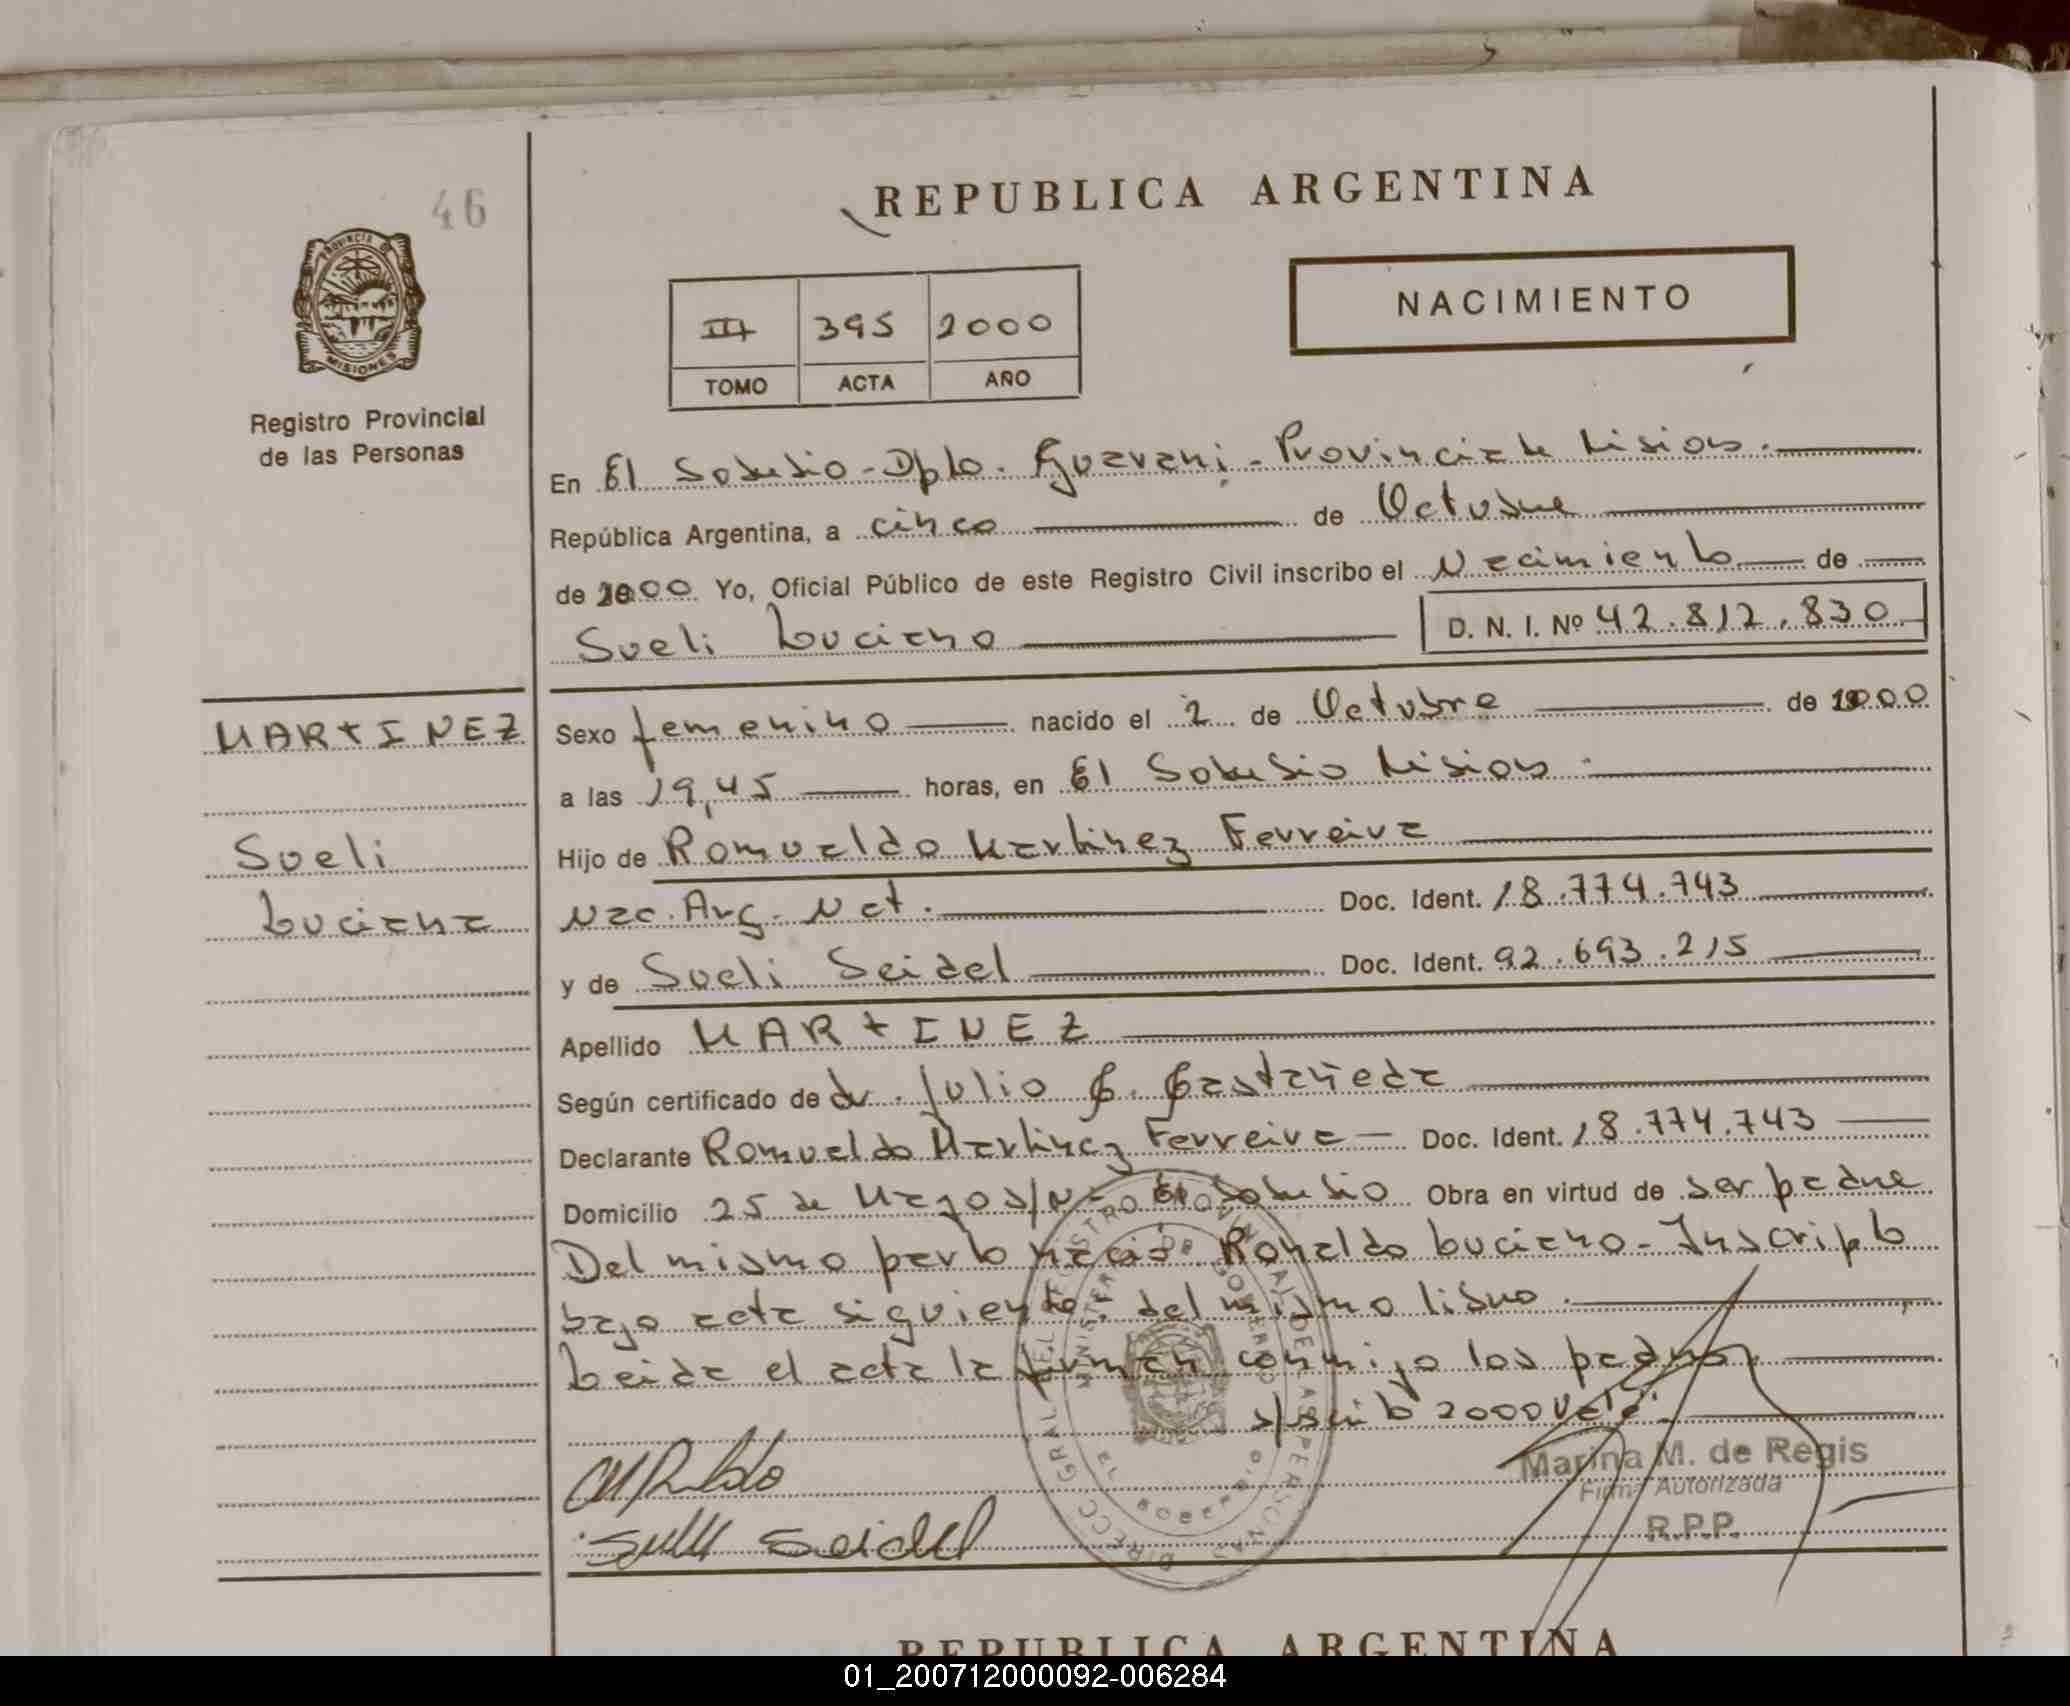 46
REPUBLICA ARGENTINA
PROVINCIA DE
MISIONES
Registro Provincial
de las Personas
III 395 2000
TOMO ACTA AÑO
NACIMIENTO
En El Soberbio - Dpto. Guarani - Provincia de Misiones.
República Argentina, a cinco de Octubre
de 2000 Yo, Oficial Público de este Registro Civil inscribo el Nacimiento de
Sueli Luciano
D. N. I. Nº 42.812.830
MARTINEZ
Sueli
Luciana
Sexo femenino nacido el 2 de Octubre de 2000
a las 19,45 horas, en El Soberbio Misiones.
Hijo de Romualdo Martinez Ferreira
Nac. Arg. Nat. Doc. Ident. 18.774.743
y de Sueli Seidel Doc. Ident. 92.693.215
Apellido MARTINEZ
Según certificado de dr. Julio C. Castañeda
Declarante Romualdo Martinez Ferreira - Doc. Ident. 18.774.743
Domicilio 25 de Mayo s/n - El Soberbio Obra en virtud de ser padre
Del mismo parto nació Ronaldo Luciano - Inscripto
bajo acta siguiente del mismo libro.
Leida el acta la firman conmigo los padres.
s/scrito 2000 Vale.
Seidel
Marina M. de Regis
Firma Autorizada
R.P.P.
DIRECC. GRAL. DEL REGISTRO PROVINCIAL DE LAS PERSONAS
MINISTERIO DE GOBIERNO
EL SOBERBIO
REPUBLICA ARGENTINA
01_200712000092-006284